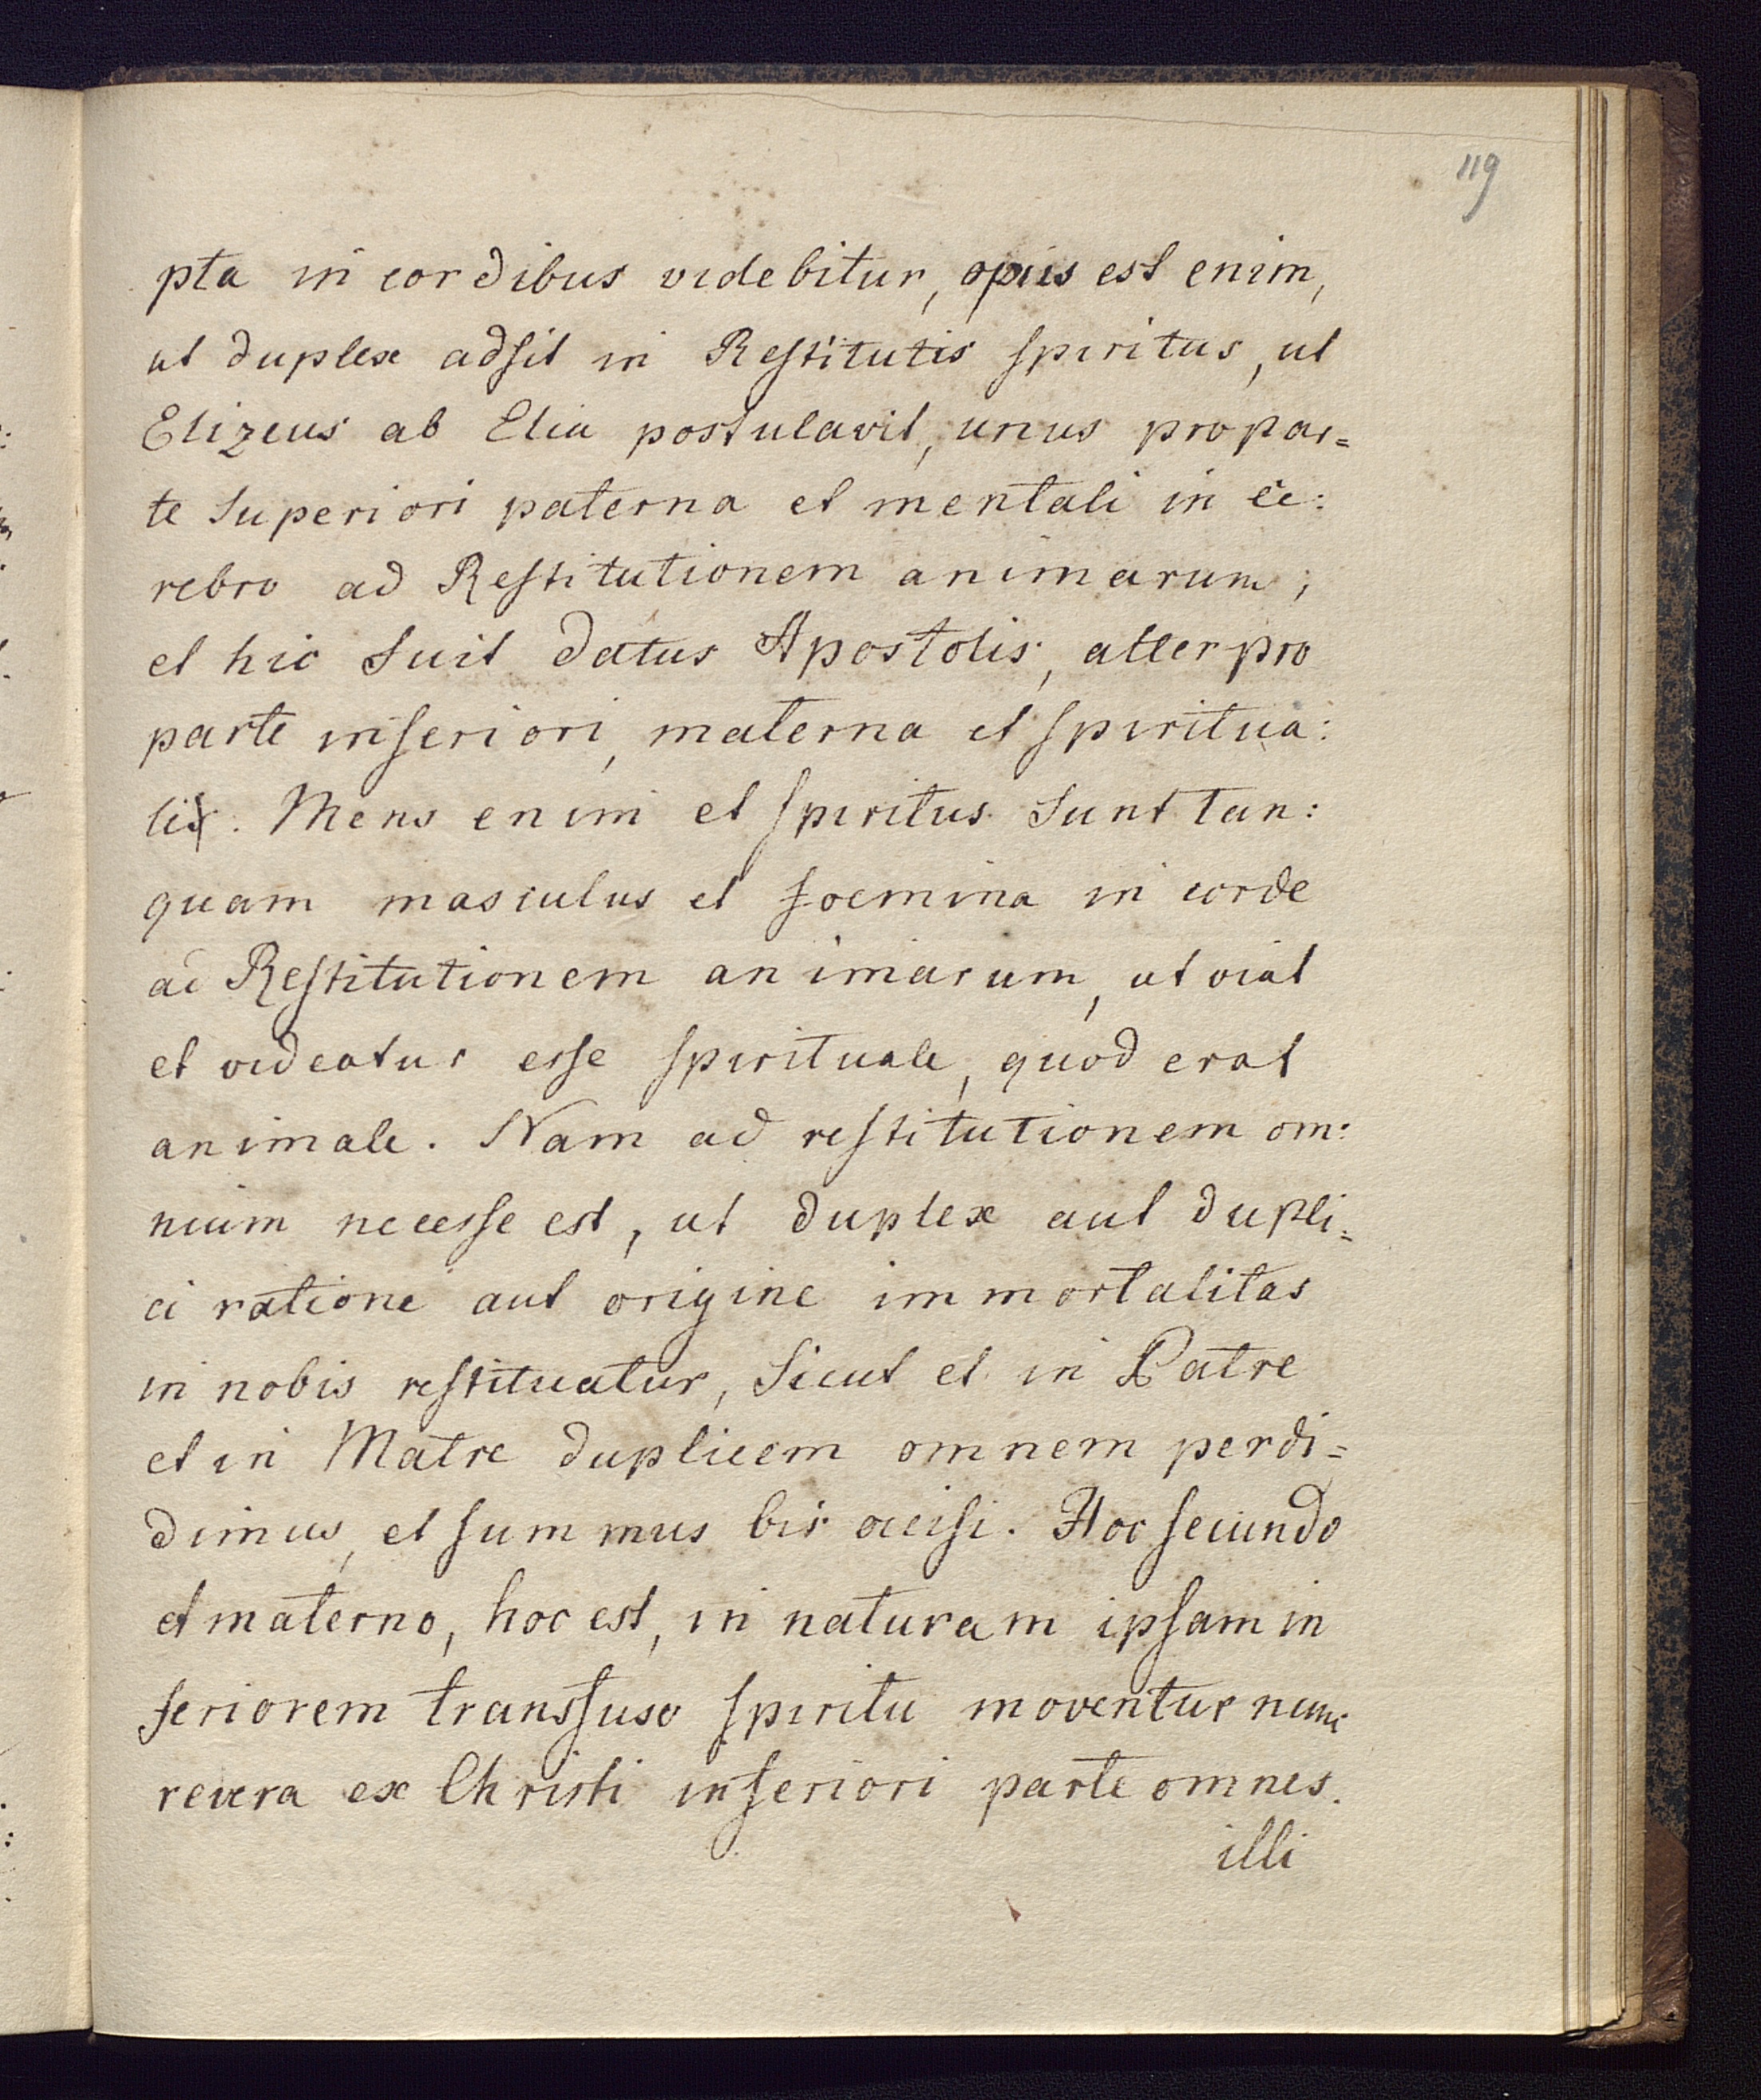 119
pta in cordibus videbitur, opus est enim,
ut duplex adsit in Restitutis spiritus, ut
Elizeus ab Elia postulavit, unus pro par=
te superiori paterna et mentali in ce:
rebro ad Restitutionem animarum;
et hic fuit datus Apostolis, alter pro
parte inferiori, materna et spiritua:
lis. Mens enim et spiritus sunt tan:
quam masculus et foemina in corde
ad Restitutionem animarum, ut
et videatur esse spirituale, quod erat
animale. Nam ad restitutionem om:
nium necesse est, ut duplex aut dupli=
ci ratione aut origine immortalitas
in nobis restituatur, sicut et in Patre
et in Matre duplicem omnem perdi=
dimus, et summus bis occisi. Hoc secundo
et materno, hoc est, in naturam ipsam in
feriorem transfuso spiritu moventur nunc
revera ex Christi inferiori parte omnes.
illi